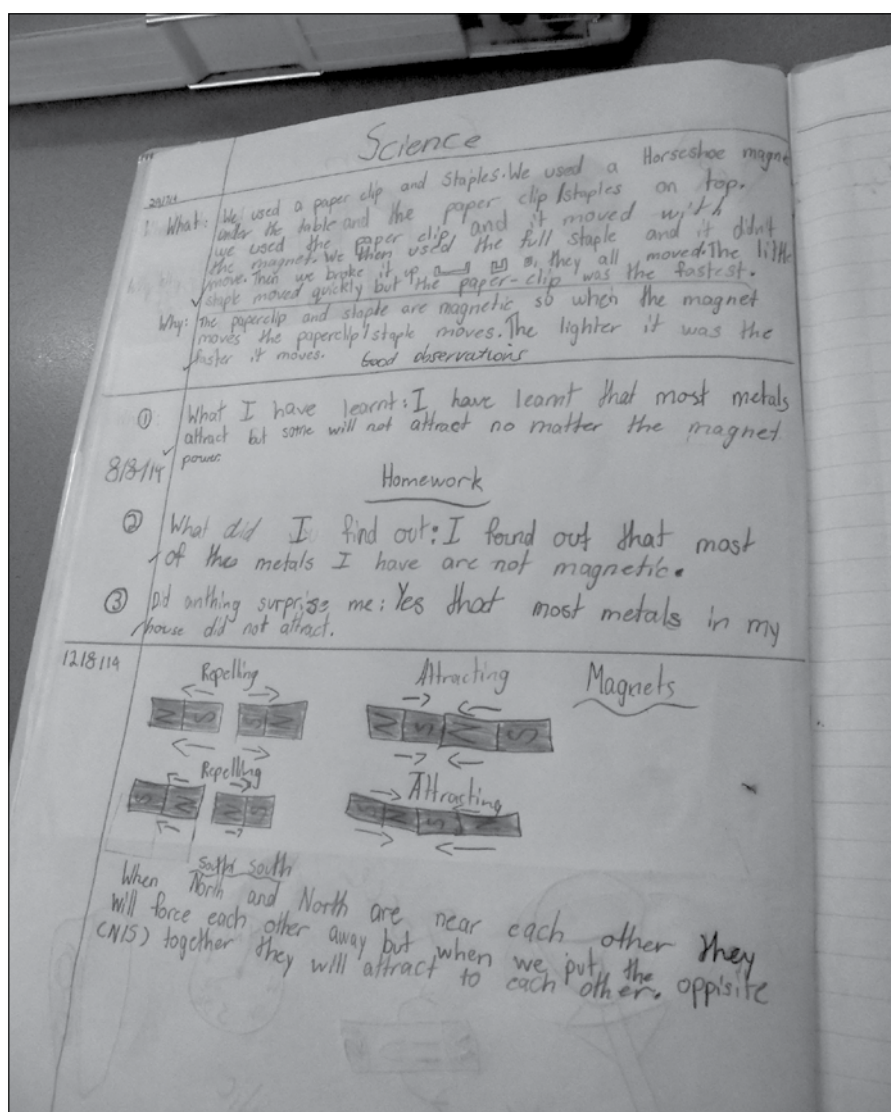 Science
What: We used a paper clip and staples. We used a Horseshoe magne
under the table and the paper clip/staples on top.
we used the paper clip and it moved with
the magnet. We then used the full staple and it didn't
move. Then we broke it up, they all moved. The little
staple moved quickly but the paper-clip was the fastest.
Why: The paperclip and staple are magnetic so when the magnet
moves the paperclip/staple moves. The lighter it was the
faster it moves. Good observations
① What I have learnt: I have learnt that most metals
attract but some will not attract no matter the magnet
power.
8/8/14 Homework
② What did I find out: I found out that most
of the metals I have are not magnetic.
③ Did anthing surprise me: Yes that most metals in my
house did not attract.
12/8/14
Repelling Attracting Magnets
N S S N N S N S
Repelling Attracting
S N N S S N S N
south south
When North and North are near each other they
will force each other away but when we put the opposite
(N/S) together they will attract to each other.